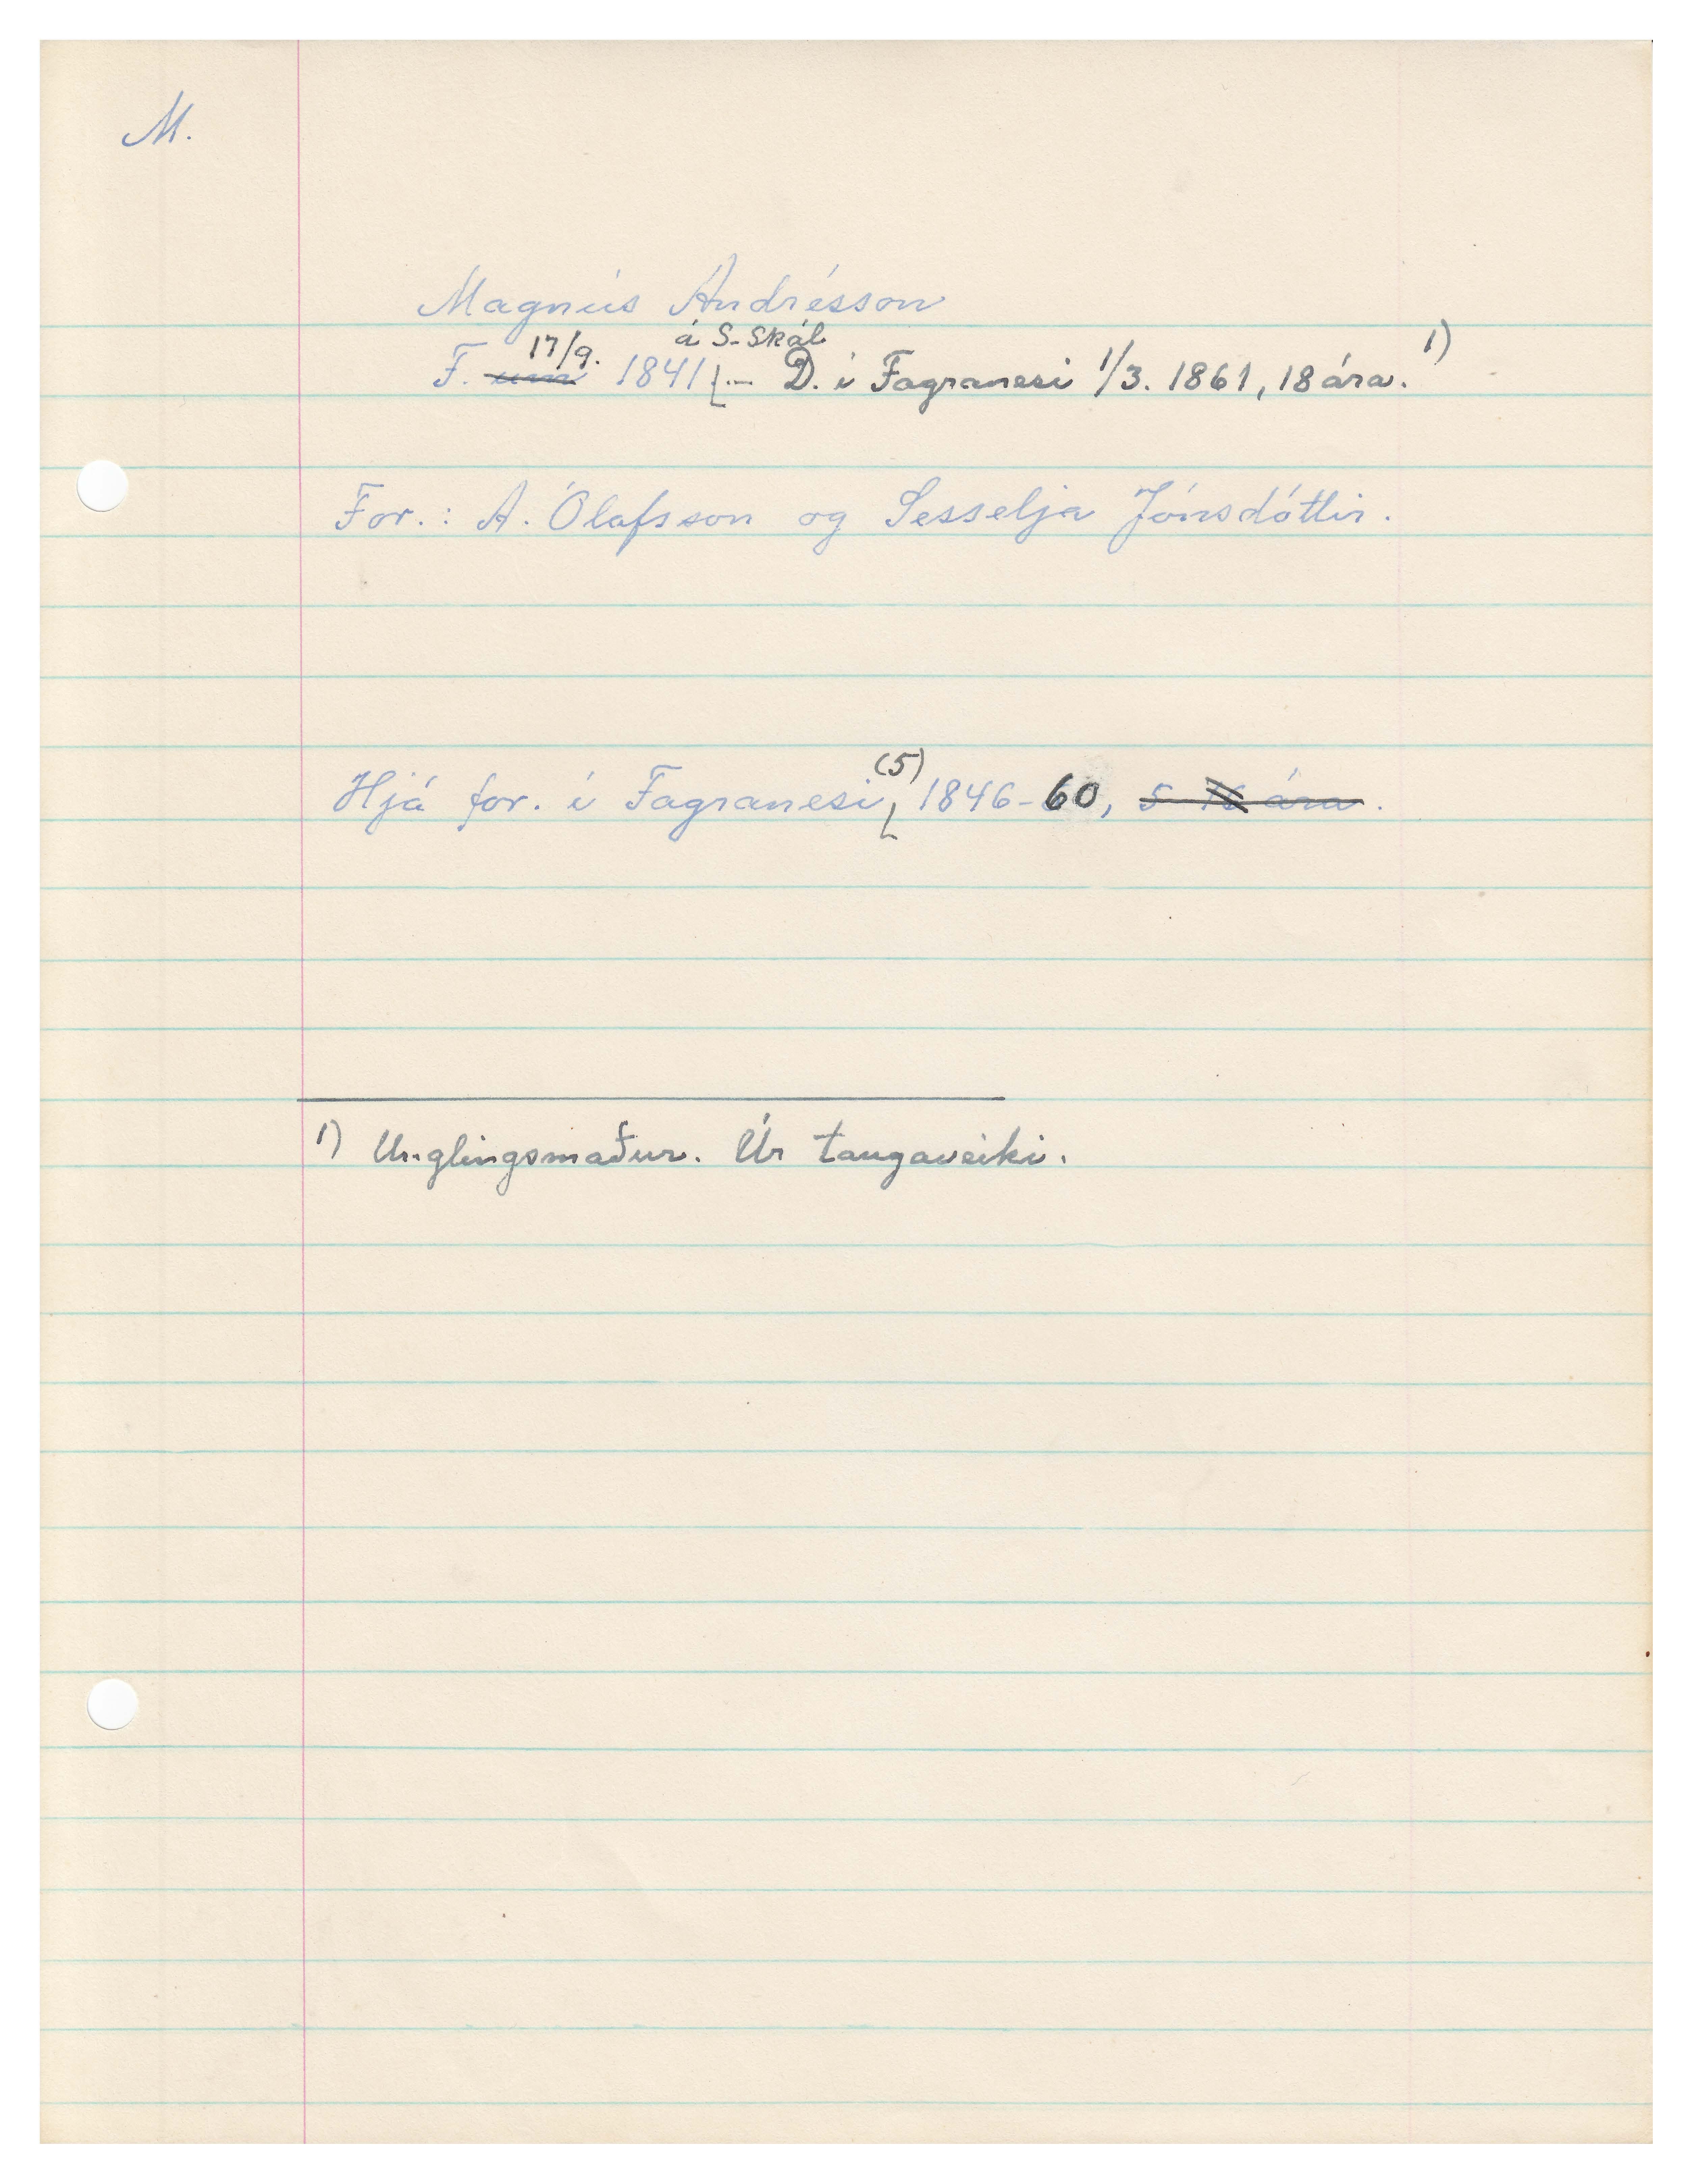 M.
Magnús Andrésson
F. um 17/9. 1841 á S-Skál - D. í Fagranesi 1/3. 1861, 18 ára. 1)
For.: A. Ólafsson og Sesselja Jónsdóttir.
Hjá for. í Fagranesi, (5) 1846-60, 5-16 ára.
1) Unglingsmaður. Úr taugaveiki.